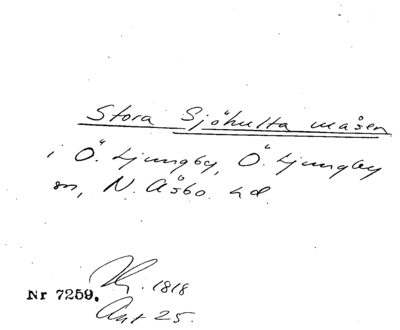 Stora Sjöhulta måsen
i Ö. Ljungby, Ö. Ljungby
sn, N. Åsbo hd
1818
Nr 7259.
Ant 25.